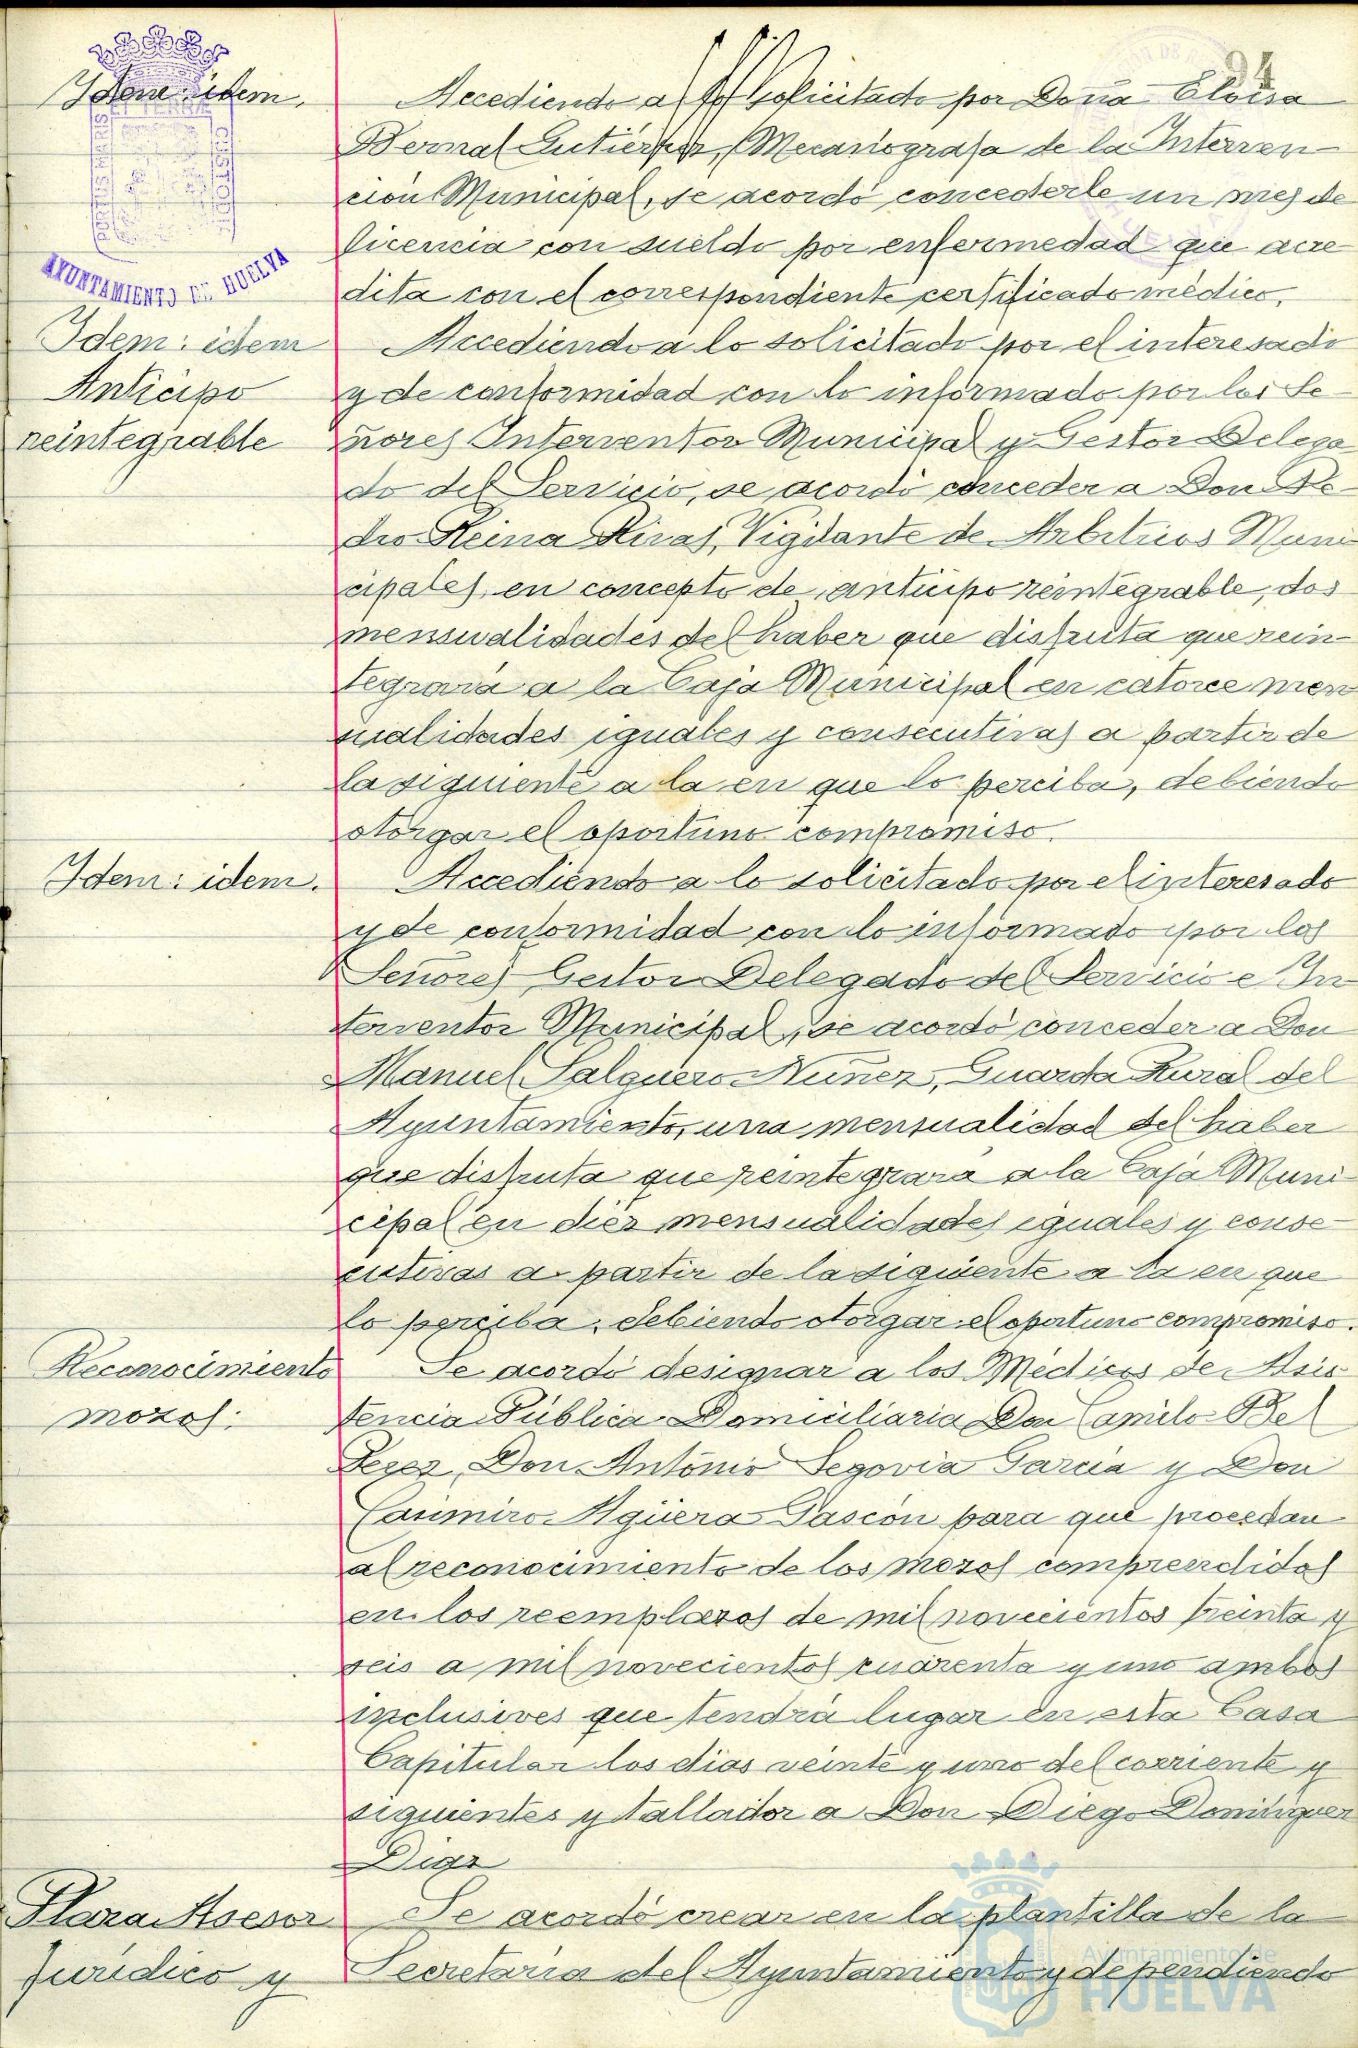 94
Idem: idem.
AYUNTAMIENTO DE HUELVA
Accediendo a lo solicitado por Doña Eloisa
Bernal Gutierrez, Mecanografa de la Interven-
ción Municipal, se acordó concederle un mes de
licencia con sueldo por enfermedad que acre
dita con el correspondiente certificado médico.
Idem: idem
Anticipo
reintegrable
Accediendo a lo solicitado por el interesado
y de conformidad con lo informado por los Se-
ñores Interventor Municipal y Gestor Delega
do del Servicio, se acordó conceder a Don Pe-
dro Reina Rivas, Vigilante de Arbitrios Muni
cipales, en concepto de anticipo reintegrable, dos
mensualidades del haber que disfruta que rein-
tegrará a la Caja Municipal en catorce men
sualidades iguales y consecutivas a partir de
la siguiente a la en que lo perciba, debiendo
otorgar el oportuno compromiso.
Idem: idem.
Accediendo a lo solicitado por el interesado
y de conformidad con lo informado por los
Señores Gestor Delegado del Servicio e In
terventor Municipal, se acordó conceder a Don
Manuel Salguero Nuñez, Guarda Rural del
Ayuntamiento, una mensualidad del haber
que disfruta que reintegrará a la Caja Muni-
cipal en diez mensualidades iguales y conse-
cutivas a partir de la siguiente a la en que
lo perciba, debiendo otorgar el oportuno compromiso.
Reconocimiento
mozos:
Se acordó designar a los Médicos de Asis
tencia Pública Domiciliaria Don Camilo Bel
Perez, Don Antonio Segovia Garcia y Don
Casimiro Agüera Pascón para que procedan
al reconocimiento de los mozos comprendidos
en los reemplazos de mil novecientos treinta y
seis a mil novecientos cuarenta y uno ambos
inclusives que tendrá lugar en esta Casa
Capitular los dias veinte y uno del corriente y
siguientes y tallador a Don Diego Dominguez
Diaz
Plaza Asesor
Jurídico y
Se acordó crear en la plantilla de la
Secretaría del Ayuntamiento y dependiendo
Ayuntamiento de
HUELVA